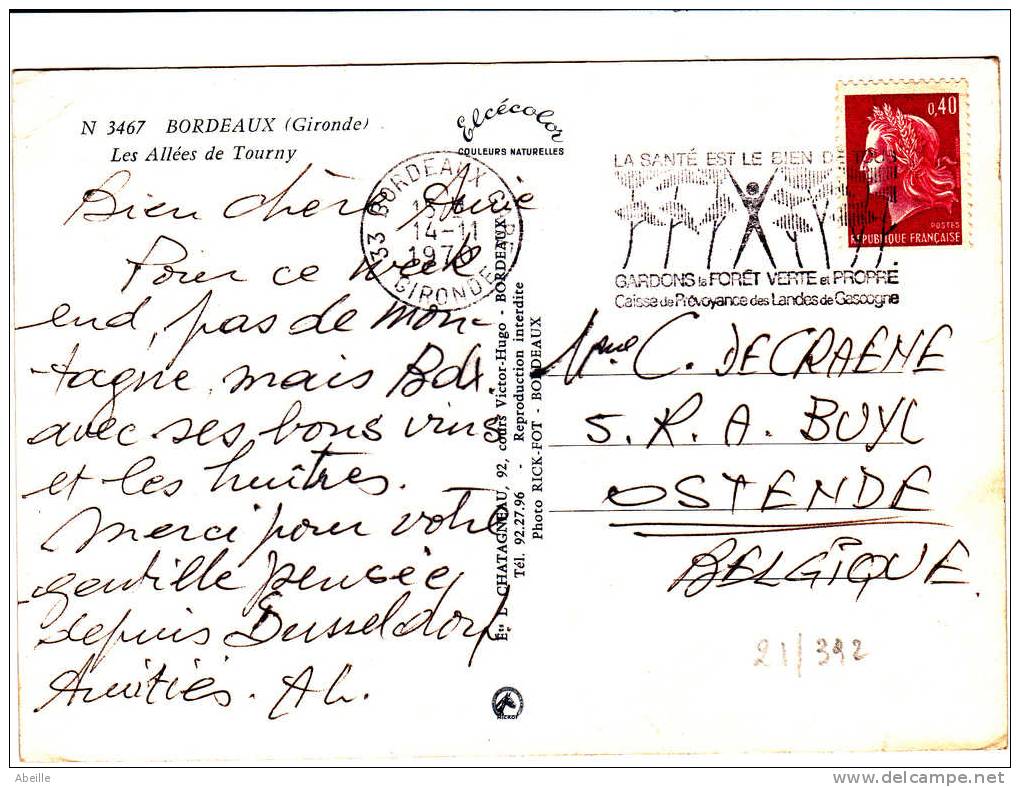 N 3467 BORDEAUX (Gironde)
Les Allées de Tourny
Elcécolor
COULEURS NATURELLES
33 BORDEAUX
14-11
1970
GIRONDE
LA SANTÉ EST LE BIEN DE TOUS
GARDONS la FORÊT VERTE et PROPRE
Caisse de Prévoyance des Landes de Gascogne
0,40
POSTES
REPUBLIQUE FRANÇAISE
Bien chère Amie
Pour ce week
end, pas de mon-
tagne, mais Bdx.
avec ses bons vins
et les huîtres.
Merci pour votre
gentille pensée
depuis Dusseldorf
Amitiés. Ah.
CHATAGNEAU, 92, cours Victor-Hugo - BORDEAUX
Tél. 92.27.96 - Reproduction interdite
Photo RICK-FOT - BORDEAUX
Mme C. DECRAENE
5. R. A. BUYL
OSTENDE
BELGIQUE.
21/392
Abeille
www.delcampe.net